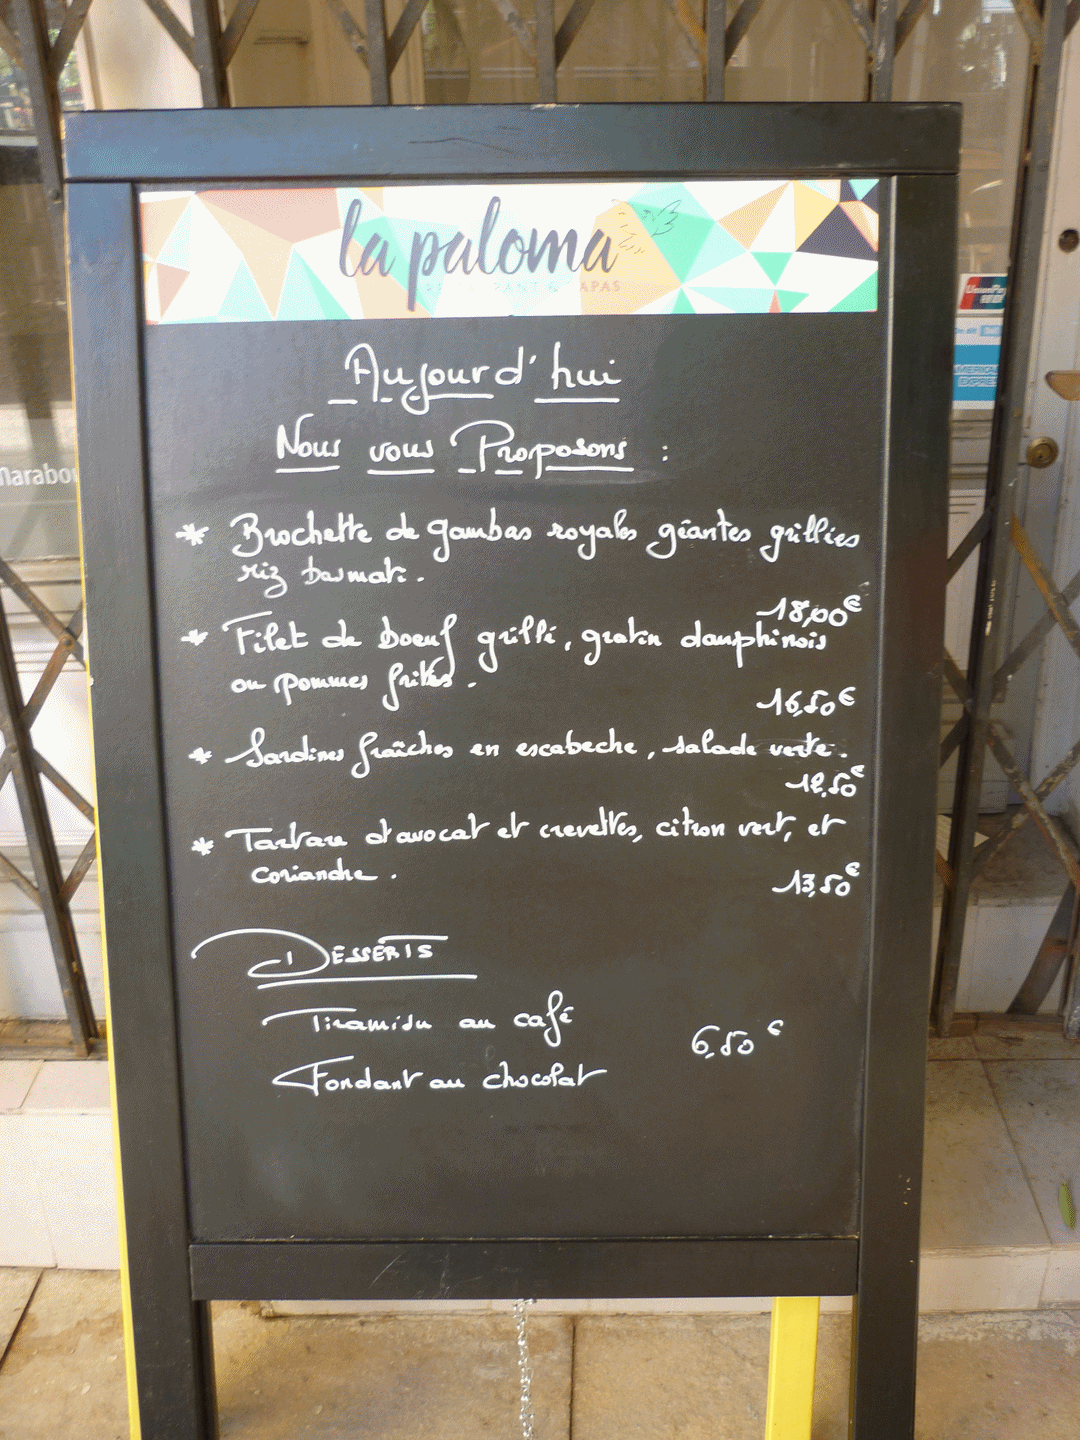 la paloma
RESTAURANT & TAPAS
Aujourd'hui
Nous vous Proposons :
* Brochette de gambas royales géantes grillées
riz basmati.
18,00€
* Filet de boeuf grillé, gratin dauphinois
ou pommes frites.
16,50€
* Sardines fraîches en escabeche, salade verte.
12,50€
* Tartare d'avocat et crevettes, citron vert, et
coriandre.
13,50€
DESSERTS
Tiramisu au café
6,50€
Fondant au chocolat
Marabou
UnionPay
AMERICAN
EXPRESS